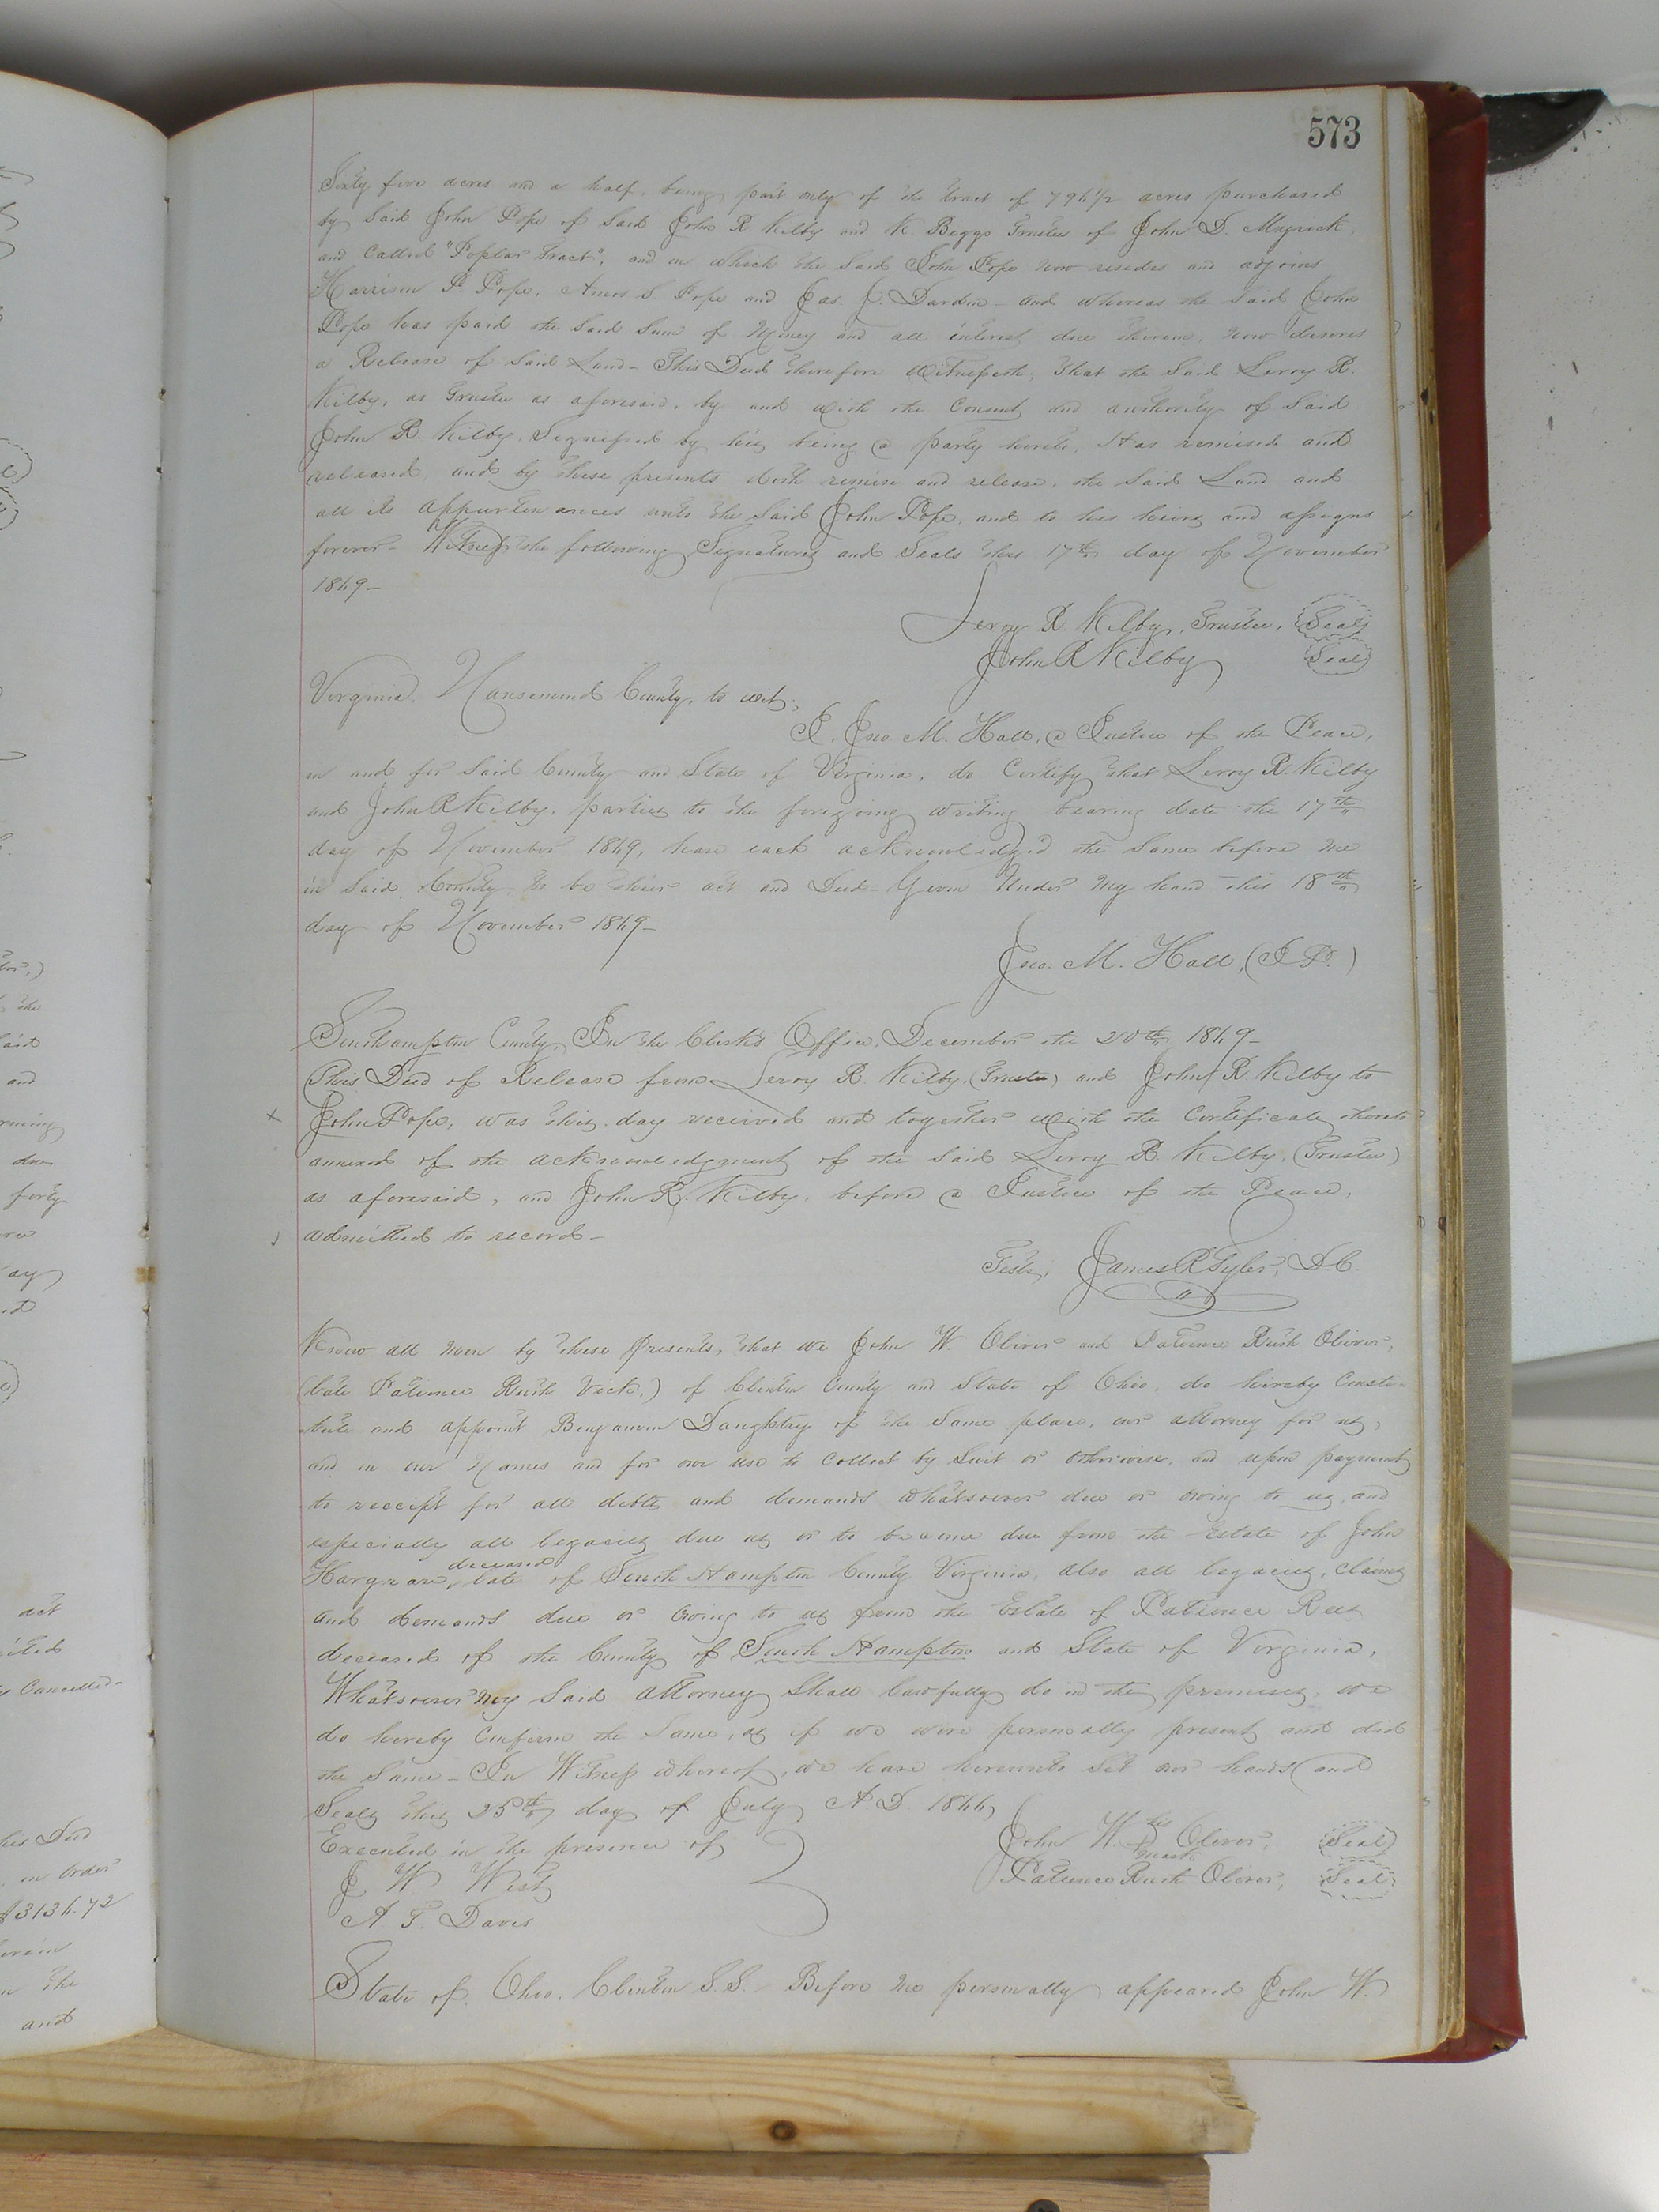 573
Sixty five acres and a half, being part only of the tract of 796 1/2 acres purchased
by said John Pope of said John R. Kilby and K. Biggs Trustees of John D. Magrick,
and Called "Poplar Tract", and on which the said John Pope now resides and adjoins
Harrison P. Pope, Amos S. Pope and Jas. J. Darden - and whereas the said John
Pope has paid the said Sum of Money and all interest due thereon, now desires
a Release of said Land - This Deed therefore Witnesseth, That the said Leroy R.
Kilby, as Trustee as aforesaid, by and with the Consent and authority of said
John R. Kilby, Signified by his being a party hereto, Has remised and
released, and by these presents doth remise and release, the said Land and
all its appurtenances unto the said John Pope, and to his heirs and assigns
forever - Witness the following Signatures and Seals this 17th day of November
1869 -
Leroy R. Kilby, Trustee, Seal
John R Kilby Seal
Virginia, Nansemond County, to wit,
I, Jno. M. Hall, a Justice of the Peace,
in and for said County and State of Virginia, do Certify that Leroy R. Kilby
and John R Kilby, parties to the foregoing writing bearing date the 17th
day of November 1869, have each acknowledged the same before me
in said County, to be their act and Deed - Given Under my hand this 18th
day of November 1869 -
Jno. M. Hall, (J P.)
Southampton County, In the Clerk's Office, December the 20th 1869 -
This Deed of Release from Leroy R. Kilby, (Trustee) and John R. Kilby to
x John Pope, was this day received and together with the Certificate thereto
annexed of the acknowledgment of the said Leroy R. Kilby, (Trustee)
as aforesaid, and John R. Kilby, before a Justice of the Peace,
admitted to record -
Teste, James R Tyler, D.C.
Know all men by these Presents, that we John W. Oliver and Patience Rush Oliver,
(late Patience Rush Vick,) of Clinton County and State of Ohio, do hereby Consti-
tute and appoint Benjamin Daughtry of the same place, our attorney for us,
and in our Names and for our use to Collect by Suit or otherwise, and upon payment
to receipt for all debts and demands whatsoever due or owing to us, and
especially all legacies due us or to become due from the Estate of John
Hargrave, deceased late of South Hampton County Virginia, also all legacies, claims
and demands due or owing to us from the Estate of Patience
deceased of the County of South Hampton and State of Virginia,
Whatsoever my said attorney shall lawfully do in the premises, we
do hereby Confirm the same, as if we were personally present and did
the same - In Witness whereof, we have hereunto set our hands and
Seals this 25th day of July A.D. 1866,
Executed in the presence of John W. his mark Oliver, Seal
J W West Patience Rush Oliver, Seal
A. T. Davis
State of Ohio, Clinton S.S. Before me personally appeared John W.